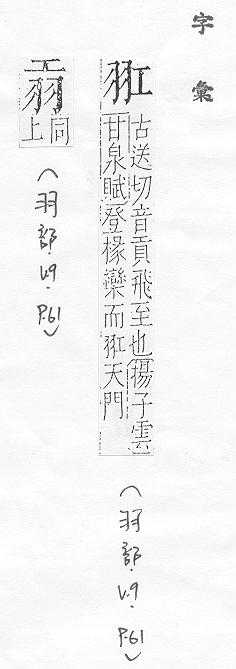 字彙
羾
古送切音貢飛至也揚子雲
甘泉賦登椽欒而羾天門
(羽部.V.9.P.61)
同上
(羽部.V.9.P.61)